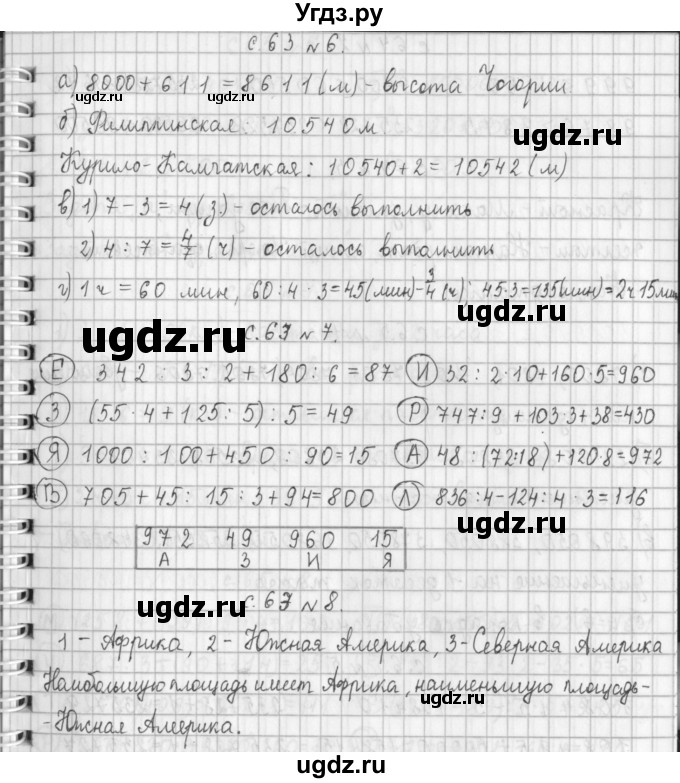 Угдз.ру
с.63 №6.
а) 8000 + 611 = 8611 (м) - высота Чогории
ugdz.ru ugdz.ru
б) Филиппинская: 10540 м. ugdz.ru
Курило-Камчатская: 10540+2 = 10542 (м)
в) 1) 7 - 3 = 4 (з) - осталось выполнить
ugdz.ru
2) 4 : 7 = 4/7 (ч) - осталось выполнить
г) 1 ч = 60 мин, 60:4 · 3 = 45 (мин) - 3/4 (ч); 45·3 = 135 (мин) = 2ч 15 мин
ugdz.ru ugdz.ru
с.63 №7.
Е 342 : 3 : 2 + 180 : 6 = 87 И 32 : 2·10+160·5=960
З (55·4 + 125 : 5) : 5 = 49 Р 747:9 + 103·3+38=430
ugdz.ru
Я 1000 : 100 + 450 : 90 = 15 А 48 : (72:18) + 120·8 = 972
В 705 + 45 : 15 : 3 + 94 = 800 Л 836 : 4 - 124 : 4 · 3 = 116
ugdz.ru
972 49 960 15
А З И Я
ugdz.ru
с.63 №8.
1 - Африка, 2 - Южная Америка, 3 - Северная Америка
Наибольшую площадь имеет Африка, наименьшую площадь -
ugdz.ru
- Южная Америка.
ugdz.ru
Угдз.ру